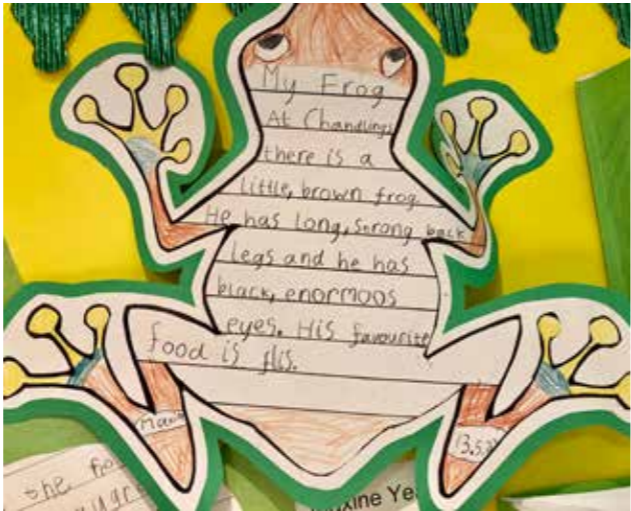 My Frog
At Chandlings
there is a
little, brown frog
He has long, strong back
legs and he has
black, enormoos
eyes. His favourite
food is flis.
13.5.
the